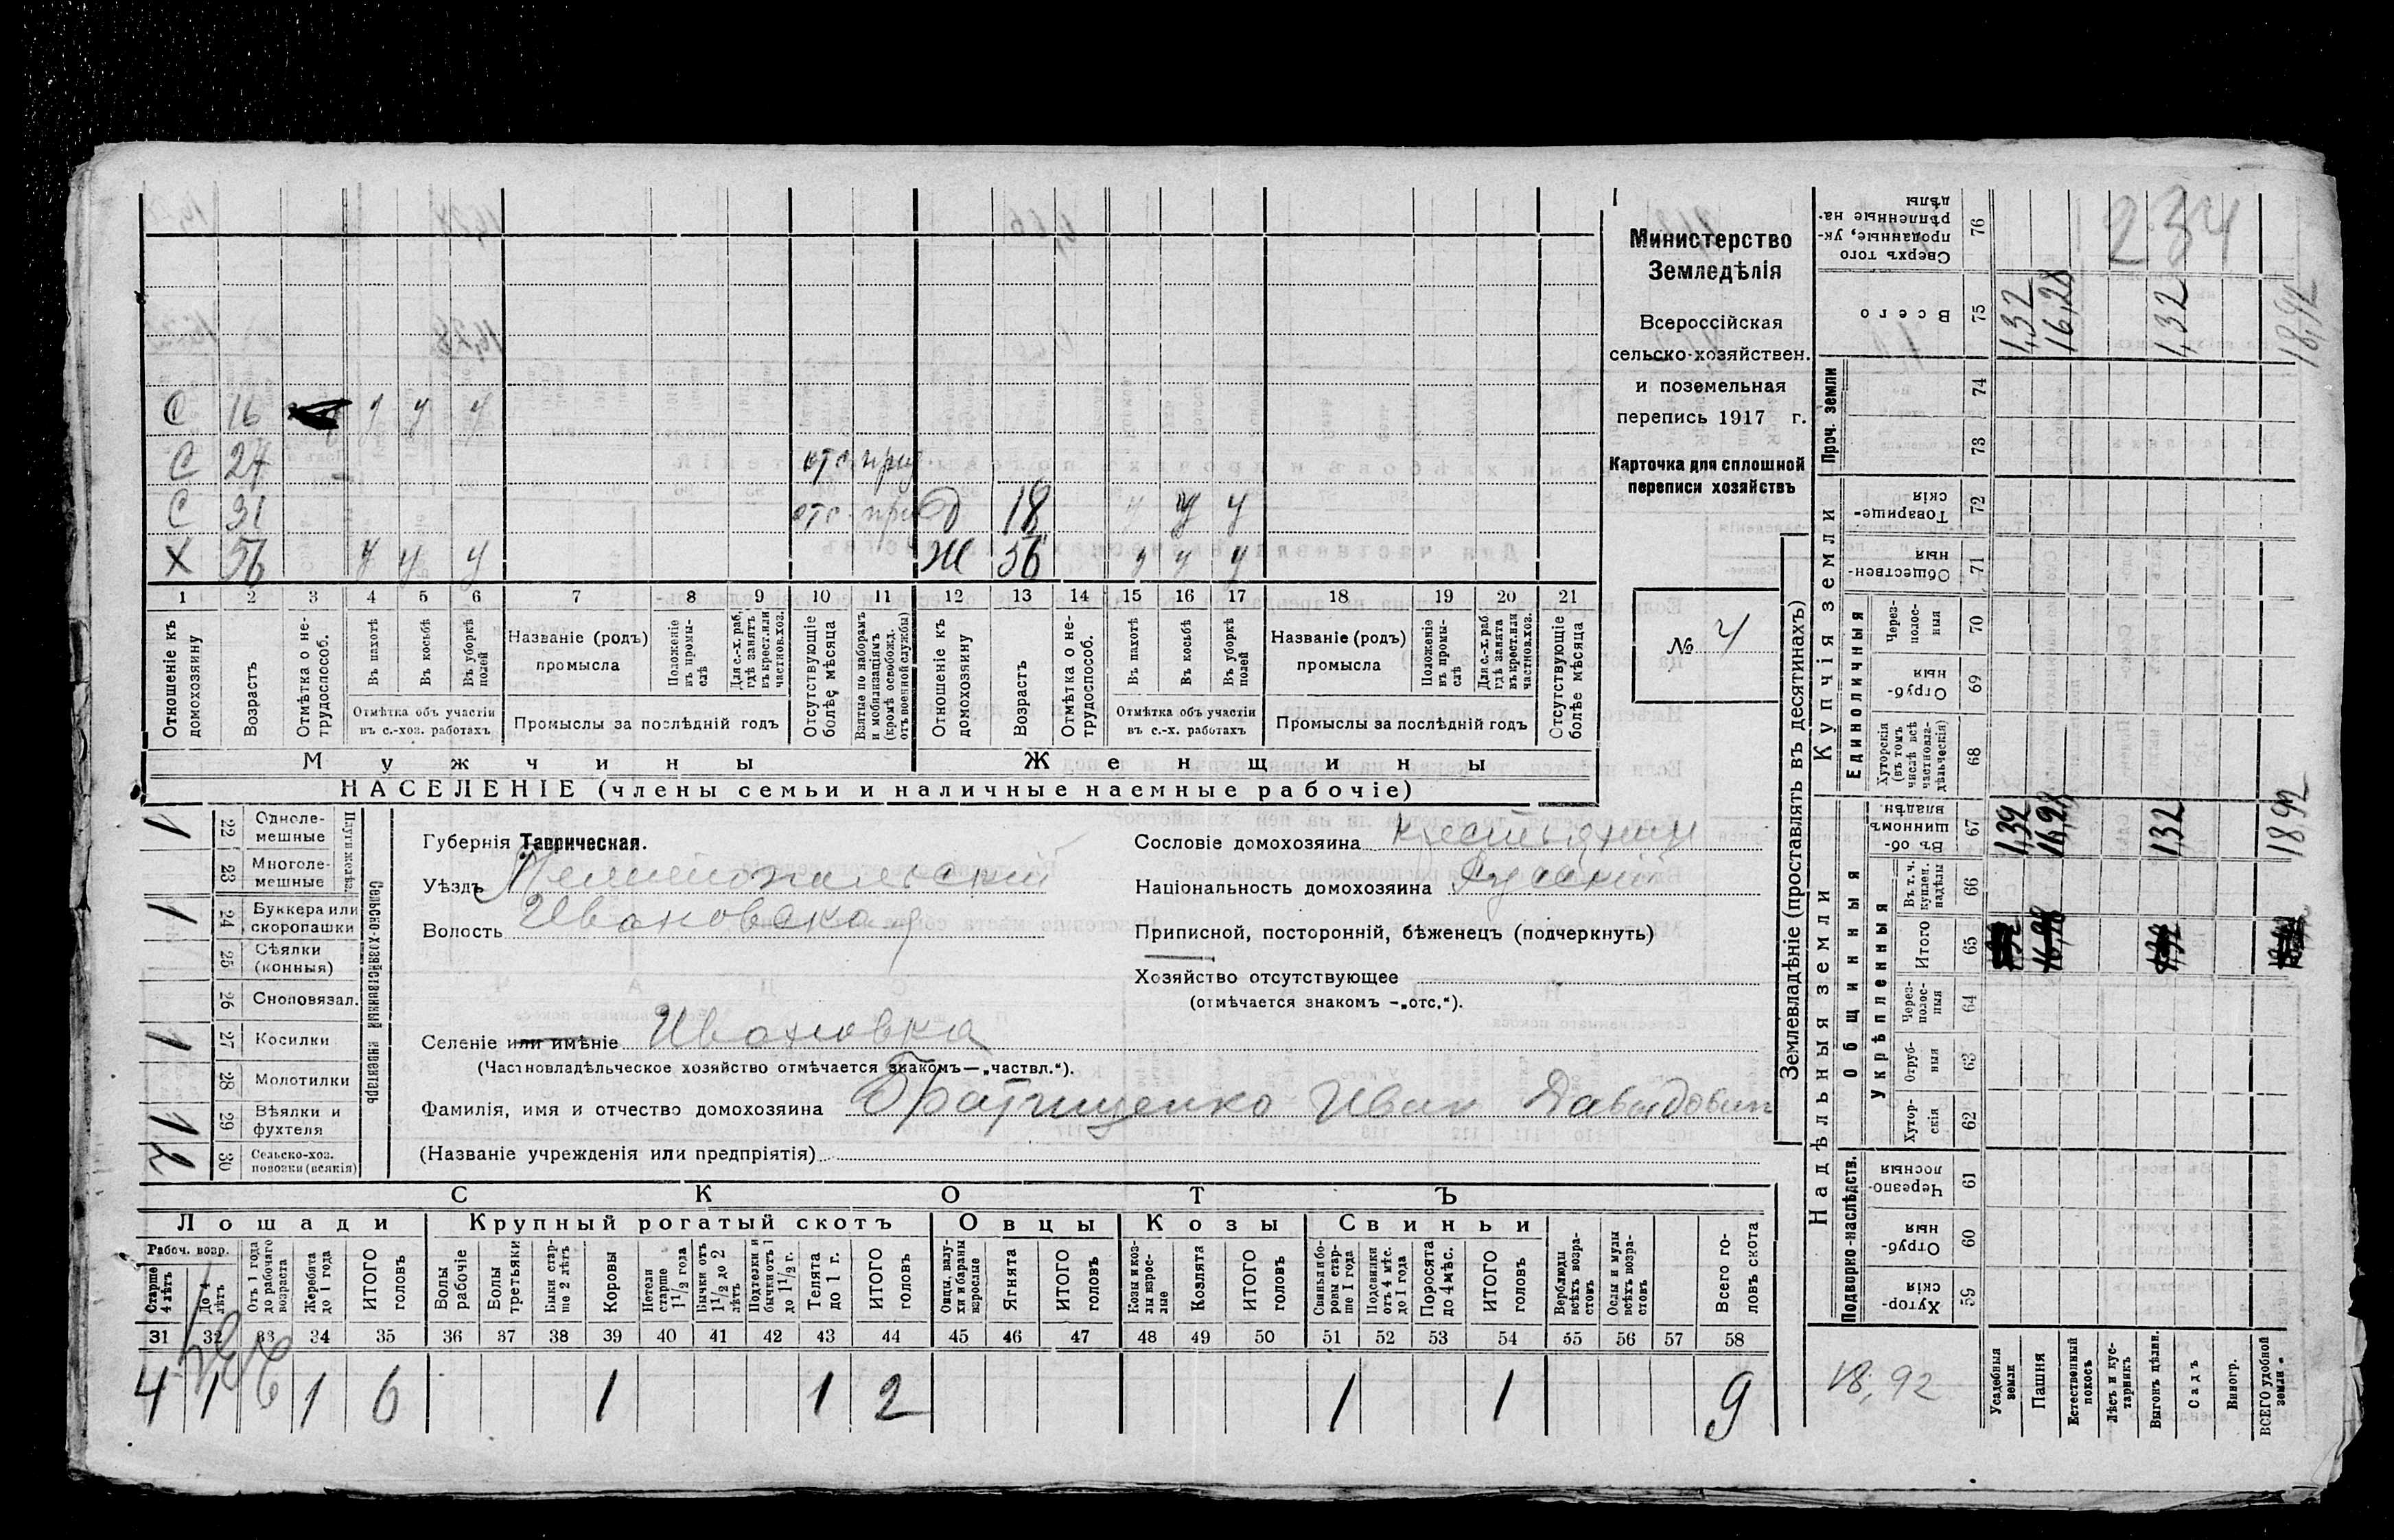 234
С 16 у у у
С 27 отс. приз.
С 31 отс. приз. Д 18 у у у
Х 56 у у у Ж 56 у у у
1 2 3 4 5 6 7 8 9 10 11 12 13 14 15 16 17 18 19 20 21
Отношеніе къ домохозяину
Возрастъ
Отмѣтка о не-трудоспособ.
Въ пахотѣ
Въ косьбѣ
Въ уборкѣ полей
Отмѣтка объ участіи въ с.-хоз. работахъ
Названіе (родъ) промысла
Положеніе въ промы-слѣ
Для с.-х. раб. гдѣ занятъ въ крест. или частнов. хоз.
Промыслы за послѣдній годъ
Отсутствующіе болѣе мѣсяца
Взятые по наборамъ и мобилизаціямъ (кромѣ освобожд. отъ военной службы)
Отношеніе къ домохозяину
Возрастъ
Отмѣтка о не-трудоспособ.
Въ пахотѣ
Въ косьбѣ
Въ уборкѣ полей
Отмѣтка объ участіи въ с.-х. работахъ
Названіе (родъ) промысла
Положеніе въ промы-слѣ
Для с.-х. раб. гдѣ занята въ крест. или частнов. хоз.
Промыслы за послѣдній годъ
Отсутствующіе болѣе мѣсяца
Мужчины
Женщины
НАСЕЛЕНІЕ (члены семьи и наличные наемные рабочіе)
Министерство
Земледѣлія
Всероссійская
сельско-хозяйствен.
и поземельная
перепись 1917 г.
Карточка для сплошной
переписи хозяйствъ
№ 4
Губернія Таврическая.
Уѣздъ Мелитопольскій
Волость Ивановская
Сословіе домохозяина крестьянин
Національность домохозяина Русскій
Приписной, посторонній, бѣженецъ (подчеркнуть)
Хозяйство отсутствующее
(отмѣчается знакомъ —„отс.“).
Селеніе или имѣніе Ивановка
(Частновладѣльческое хозяйство отмѣчается знакомъ—„частвл.“).
Фамилія, имя и отчество домохозяина Братищенко Иван Давидович
(Названіе учрежденія или предпріятія)
Сельско-хозяйственный инвентарь
Плуги желѣз.
1 22 Одноле-мешные
23 Многоле-мешные
1 24 Буккера или скоропашки
25 Сѣялки (конныя)
26 Сноповязал.
1 27 Косилки
28 Молотилки
1 29 Вѣялки и фухтеля
2 30 Сельско-хоз. повозки (всякія)
СКОТЪ
Лошади
Крупный рогатый скотъ
Овцы
Козы
Свиньи
Рабоч. возр.
Старше 4 лѣтъ
До 4 лѣтъ
Отъ 1 года до рабочаго возраста
Жеребята до 1 года
ИТОГО головъ
Волы рабочіе
Волы третьяки
Быки стар-ше 2 лѣтъ
Коровы
Нетели старше 1 1/2 года
Бычки отъ 1 1/2 до 2 лѣтъ
Подтелки и бычки отъ 1 до 1 1/2 г.
Телята до 1 г.
ИТОГО головъ
Овцы, валу-хи и бараны взрослые
Ягнята
ИТОГО головъ
Козы и коз-лы взрос-лые
Козлята
ИТОГО головъ
Свиньи и бо-ровы стар-ше 1 года
Подсвинки отъ 4 мѣс. до 1 года
Поросята до 4 мѣс.
ИТОГО головъ
Верблюды всѣхъ возра-стовъ
Ослы и мулы всѣхъ возра-стовъ
Всего го-ловъ скота
31 32 33 34 35 36 37 38 39 40 41 42 43 44 45 46 47 48 49 50 51 52 53 54 55 56 57 58
4 1 1 6 1 1 2 1 1 9
Землевладѣніе (проставлять въ десятинахъ)
Купчія земли
Надѣльныя земли
Сверхъ того проданные, ук-рѣпленные на-дѣлы 76
Всего 75 1,32 16,28 1,32 18,92
Проч. земли
74
73
Товарище-скія 72
Обществен-ныя 71
Единоличныя
Через-полос-ныя 70
Отруб-ныя 69
Хуторскія (въ томъ числѣ всѣ частновла-дѣльческія) 68
Общинныя
Въ об-щинномъ владѣн. 67 1,32 16,28 1,32 18 92
Укрѣпленныя
Въ т. ч. куплен. надѣлы 66
Итого 65
Через-полос-ныя 64
Отруб-ныя 63
Хутор-скія 62
Подворно-наслѣдств.
Черезпо-лосныя 61
Отруб-ныя 60
Хутор-скія 59
18,92
Усадебныя земли
Пашня
Естественный покосъ
Лѣсъ и кус-тарникъ
Выгонъ дѣлин.
Садъ
Виногр.
ВСЕГО удобной земли